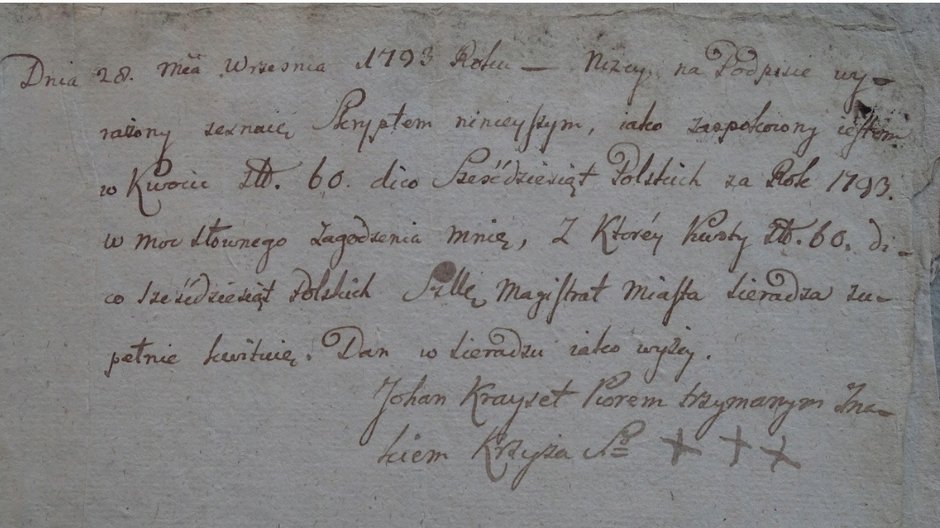 Dnia 28. mca Września 1793 Roku — Niżey na Podpisie wy-
rażony zeznaię Skryptem ninieyszym, iako zaspokoiony iestem
w Kwocie Zł. 60. dico Sześćdziesiąt Polskich za Rok 1793.
w moc słownego zagodzenia mnię, z Którey Kwoty Zł. 60. di-
co sześćdziesiąt Polskich Szltę Magistrat Miasta Sieradza zu-
pełnie kwituię. Dan w Sieradzu iako wyżey.
Johan Krayzet Piorem trzymanym Zna-
kiem Krzyża S° + + +